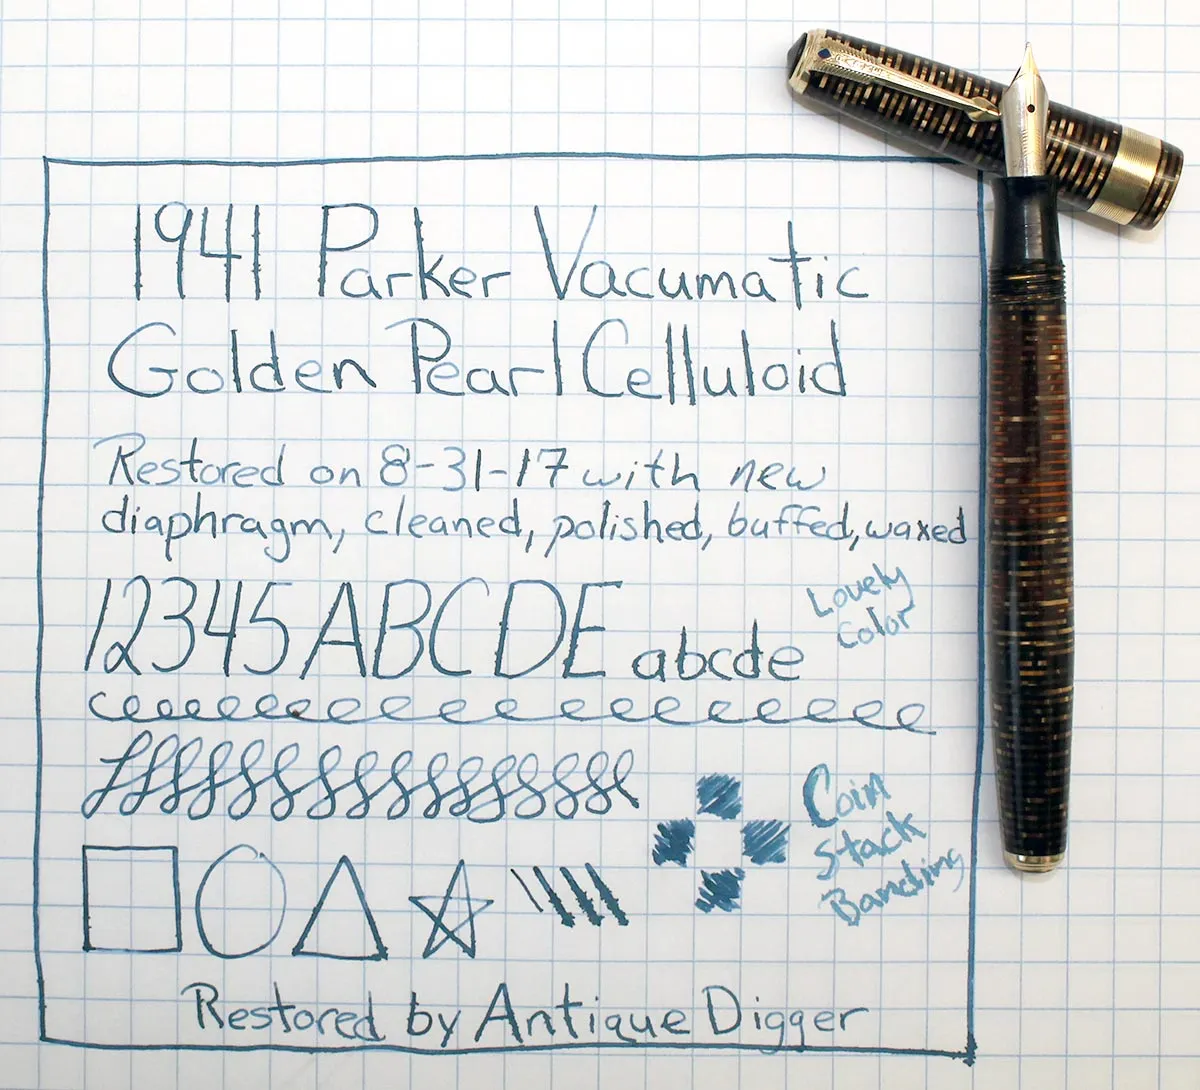 1941 Parker Vacumatic
Golden Pearl Celluloid
Restored on 8-31-17 with new
diaphragm, cleaned, polished, buffed, waxed
12345 ABCDE abcde
Lovely
Color
Coin
Stack
Banding
Restored by Antique Digger